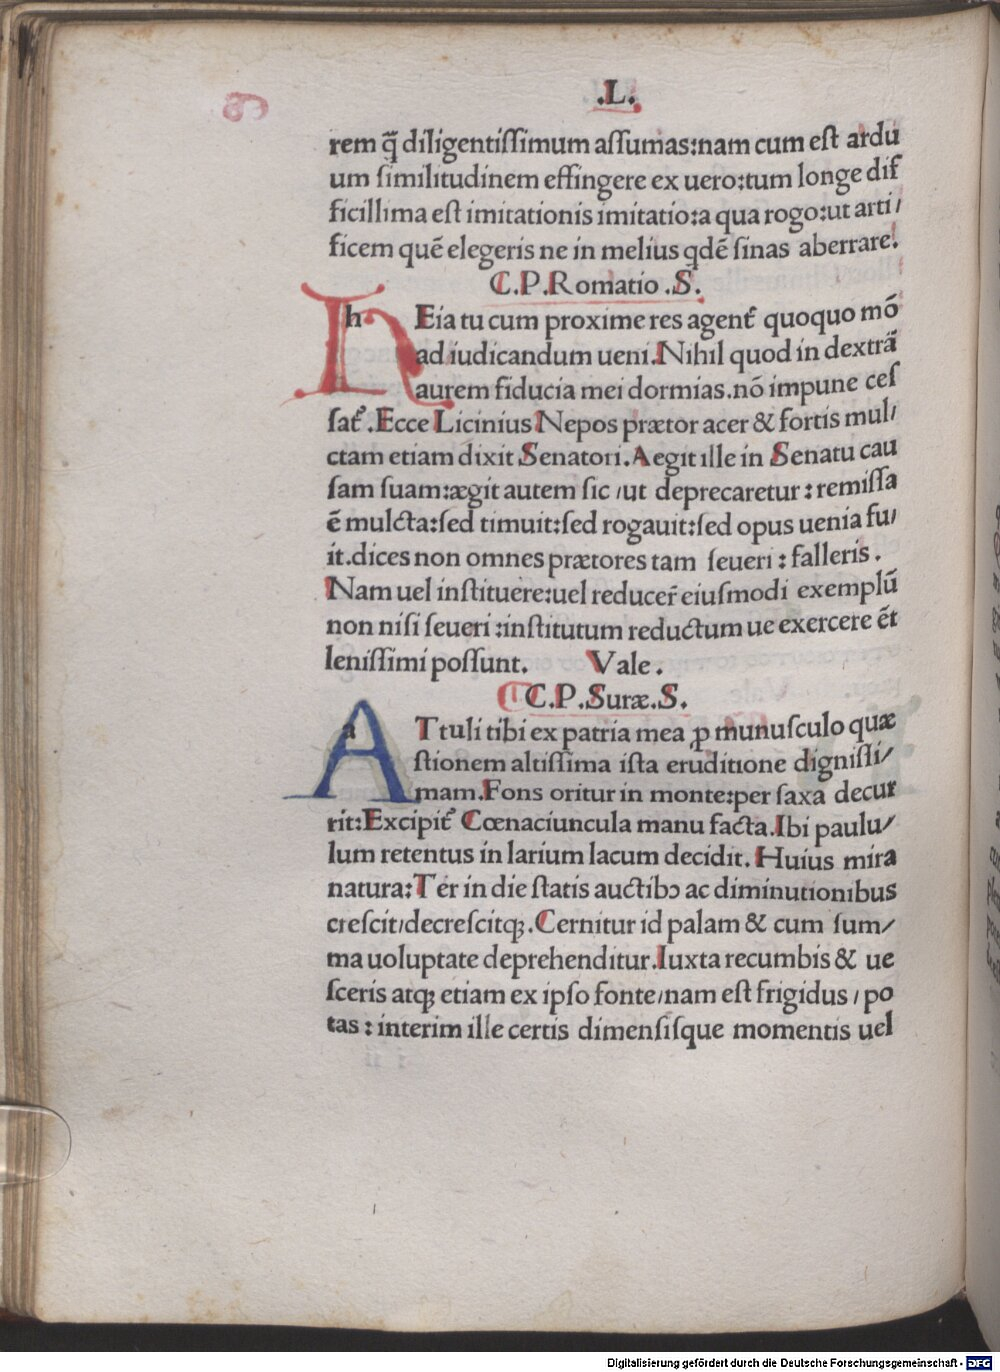 .L.
rem q̃ diligentiſſimum aſſumas:nam cum eſt ardu
um ſimilitudinem effingere ex uero:tum longe dif
ficillima eſt imitationis imitatio:a qua rogo:ut arti/
ficem quẽ elegeris ne in melius qdẽ ſinas aberrare.
C.P.Romatio .S.
h Eia tu cum proxime res agent᷑ quoquo mõ
ad iudicandum ueni.Nihil quod in dextrã
aurem fiducia mei dormias.nõ impune ceſ
ſat᷑ .Ecce Licinius Nepos prætor acer & fortis mul/
ctam etiam dixit Senatori.Aegit ille in Senatu cau
ſam ſuam:ægit autem ſic /ut deprecaretur : remiſſa
ẽ mulcta:ſed timuit:ſed rogauit:ſed opus uenia fu/
it.dices non omnes prætores tam ſeueri : falleris .
Nam uel inſtituere:uel reducer̃ eiuſmodi exemplũ
non niſi ſeueri :inſtitutum reductum ue exercere ẽt
leniſſimi poſſunt. Vale .
C.P.Suræ.S.
a Ttuli tibi ex patria mea ꝓ munuſculo quæ
ſtionem altiſſima iſta eruditione digniſſi/
mam.Fons oritur in monte:per ſaxa decur
rit:Excipit᷑ Cœnaciuncula manu facta.Ibi paulu/
lum retentus in larium lacum decidit. Huius mira
natura:Ter in die ſtatis auctibꝰ ac diminutionibus
creſcit/decreſcitqꝫ .Cernitur id palam & cum ſum/
ma uoluptate deprehenditur.Iuxta recumbis & ue
ſceris atqꝫ etiam ex ipſo fonte/nam eſt frigidus / po
tas : interim ille certis dimenſiſque momentis uel
Digitalisierung gefördert durch die Deutsche Forschungsgemeinschaft - DFG